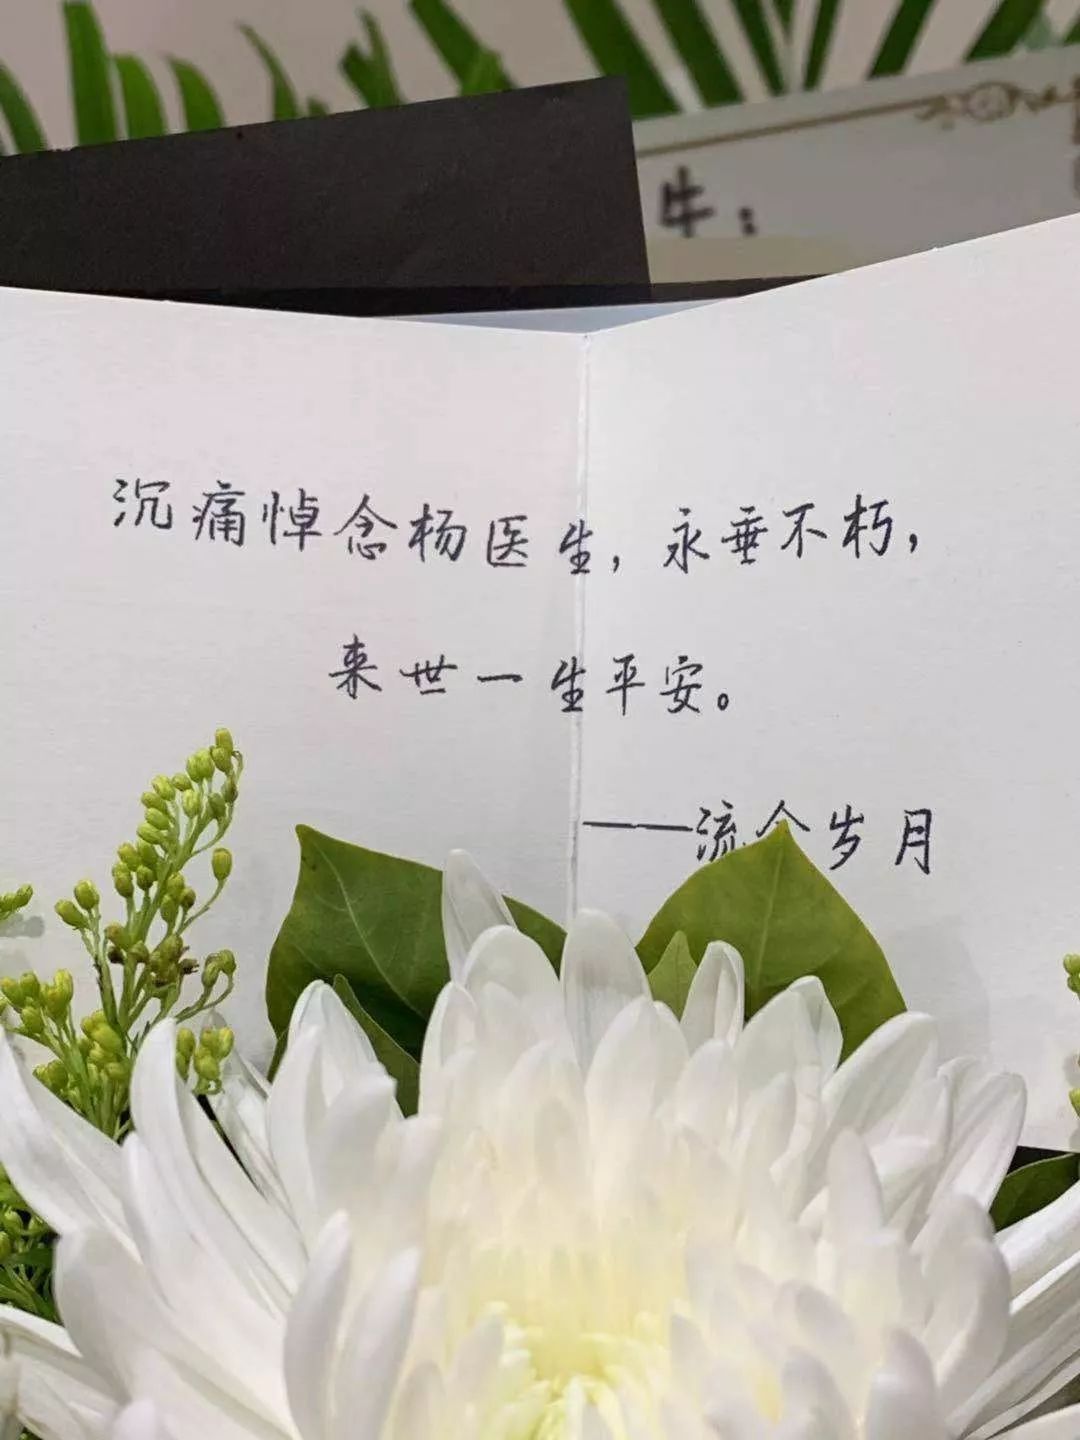 生：
沉痛悼念杨医生，永垂不朽，
来世一生平安。
——流金岁月